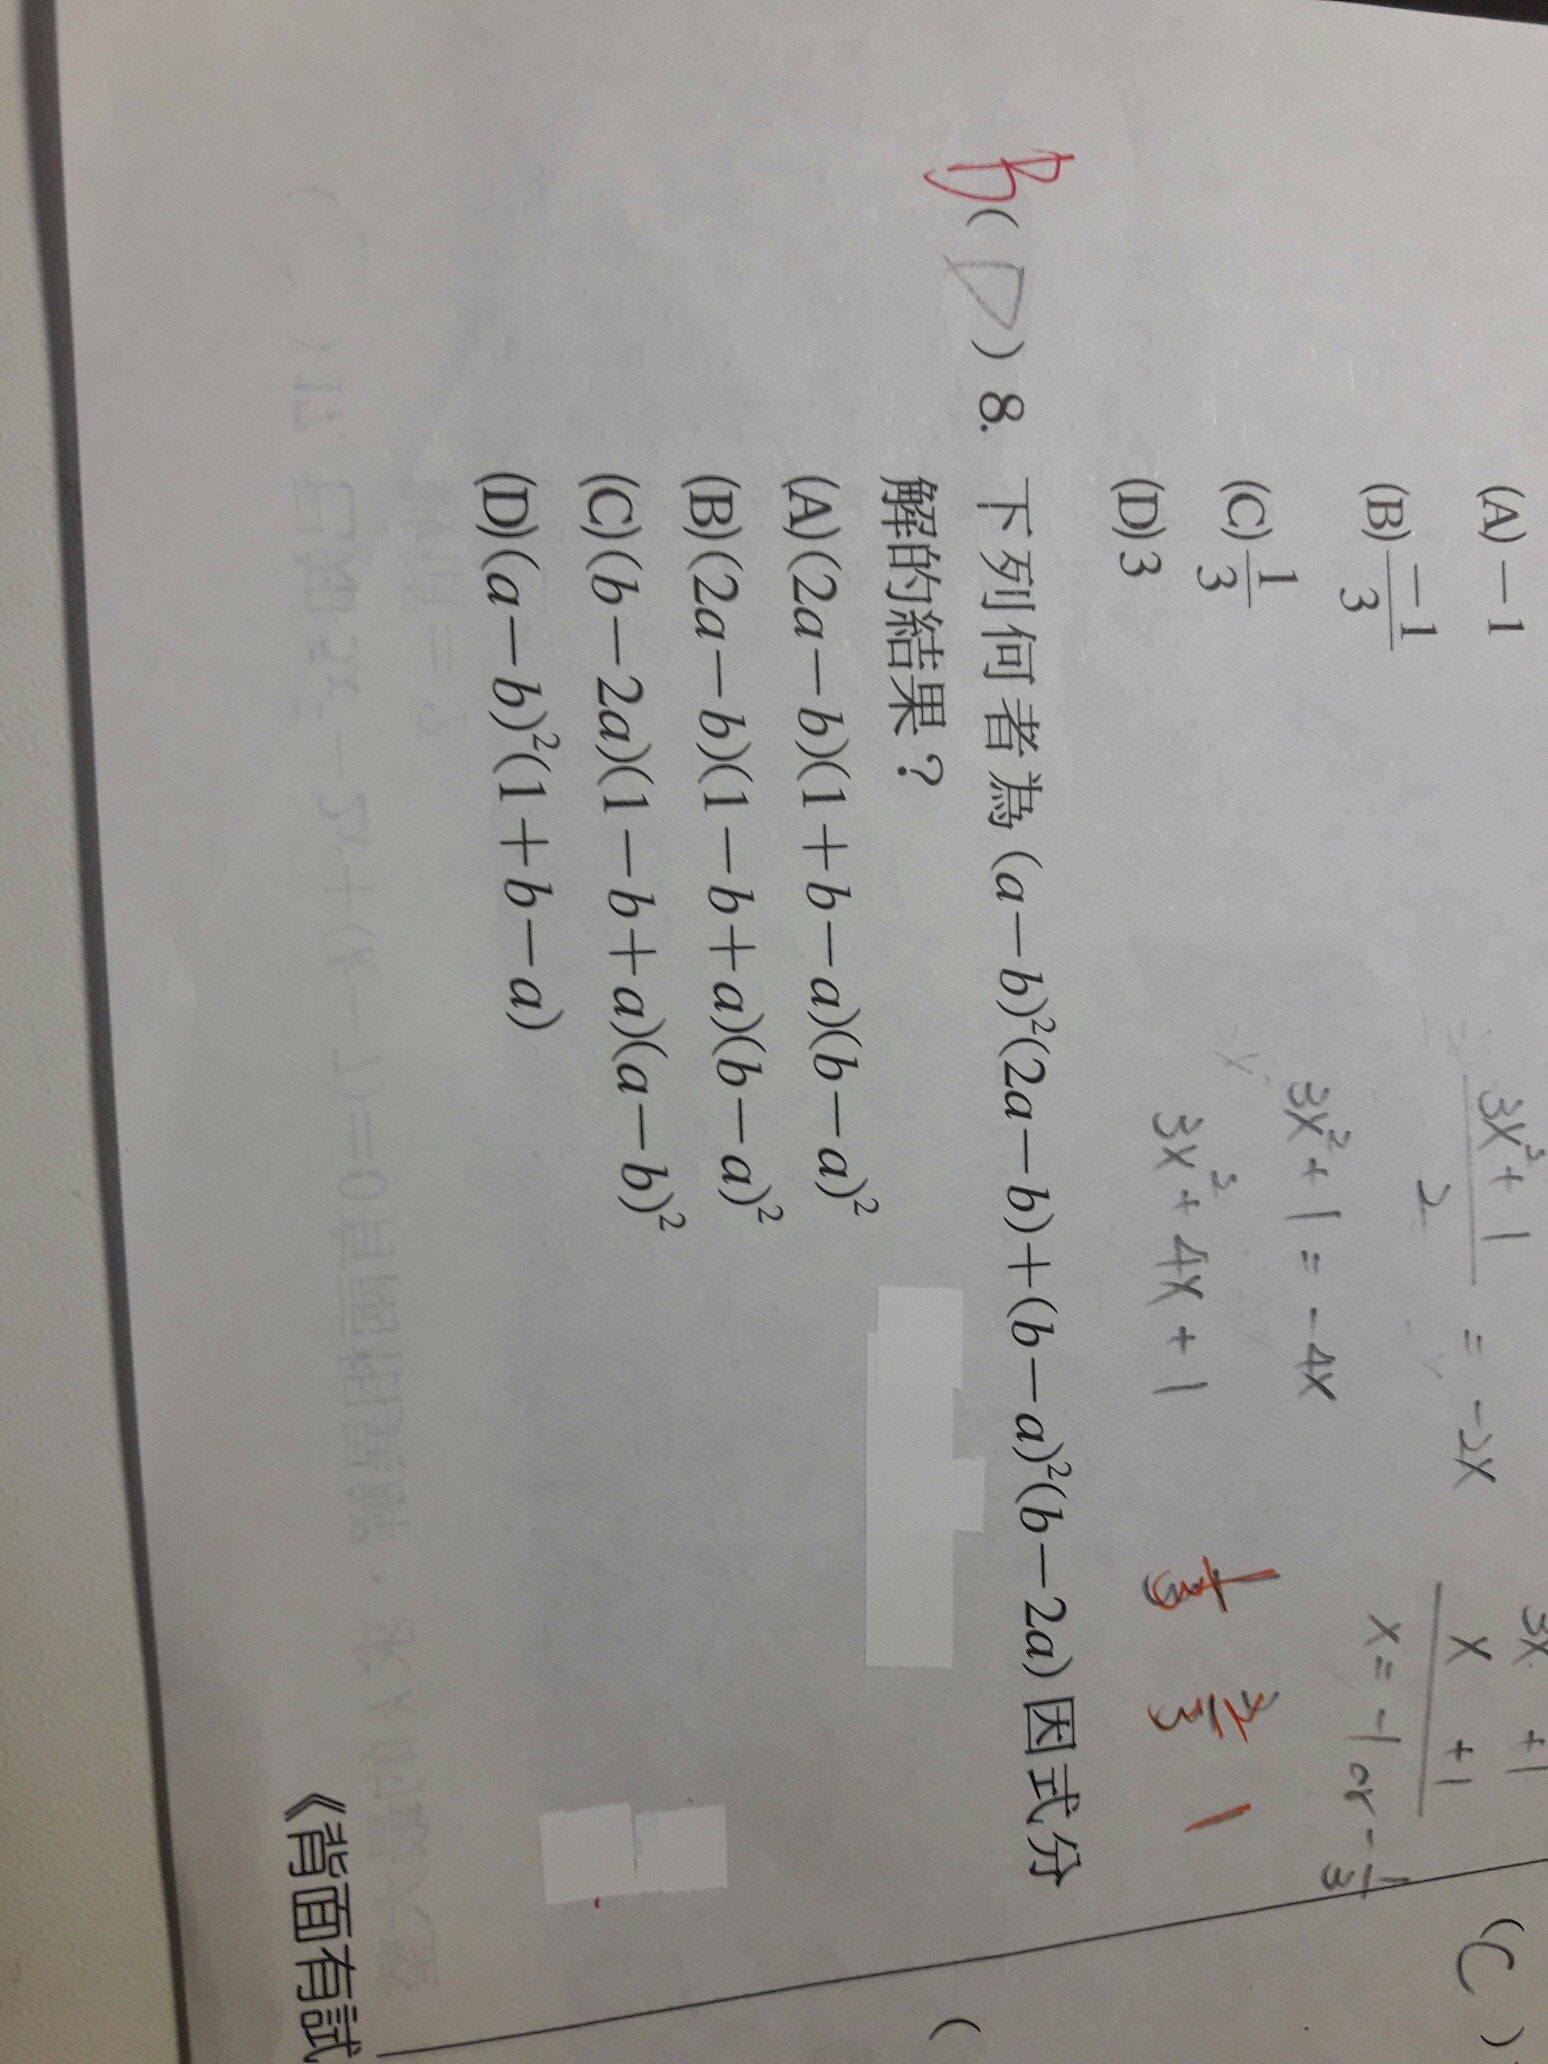 (A)－1
(B)$\frac{-1}{3}$
(C)$\frac{1}{3}$
(D)3
$\frac{3x^2+1}{2}$ = -2x
3x²+1 = -4x
3x²+4x+1
3x +1
x +1
x = -1 or -$\frac{1}{3}$
$\frac{2}{3}$ 1
B( D )8. 下列何者為(a－b)²(2a－b)＋(b－a)²(b－2a)因式分
解的結果？
(A)(2a－b)(1＋b－a)(b－a)²
(B)(2a－b)(1－b＋a)(b－a)²
(C)(b－2a)(1－b＋a)(a－b)²
(D)(a－b)²(1＋b－a)
(C)
(
《背面有試